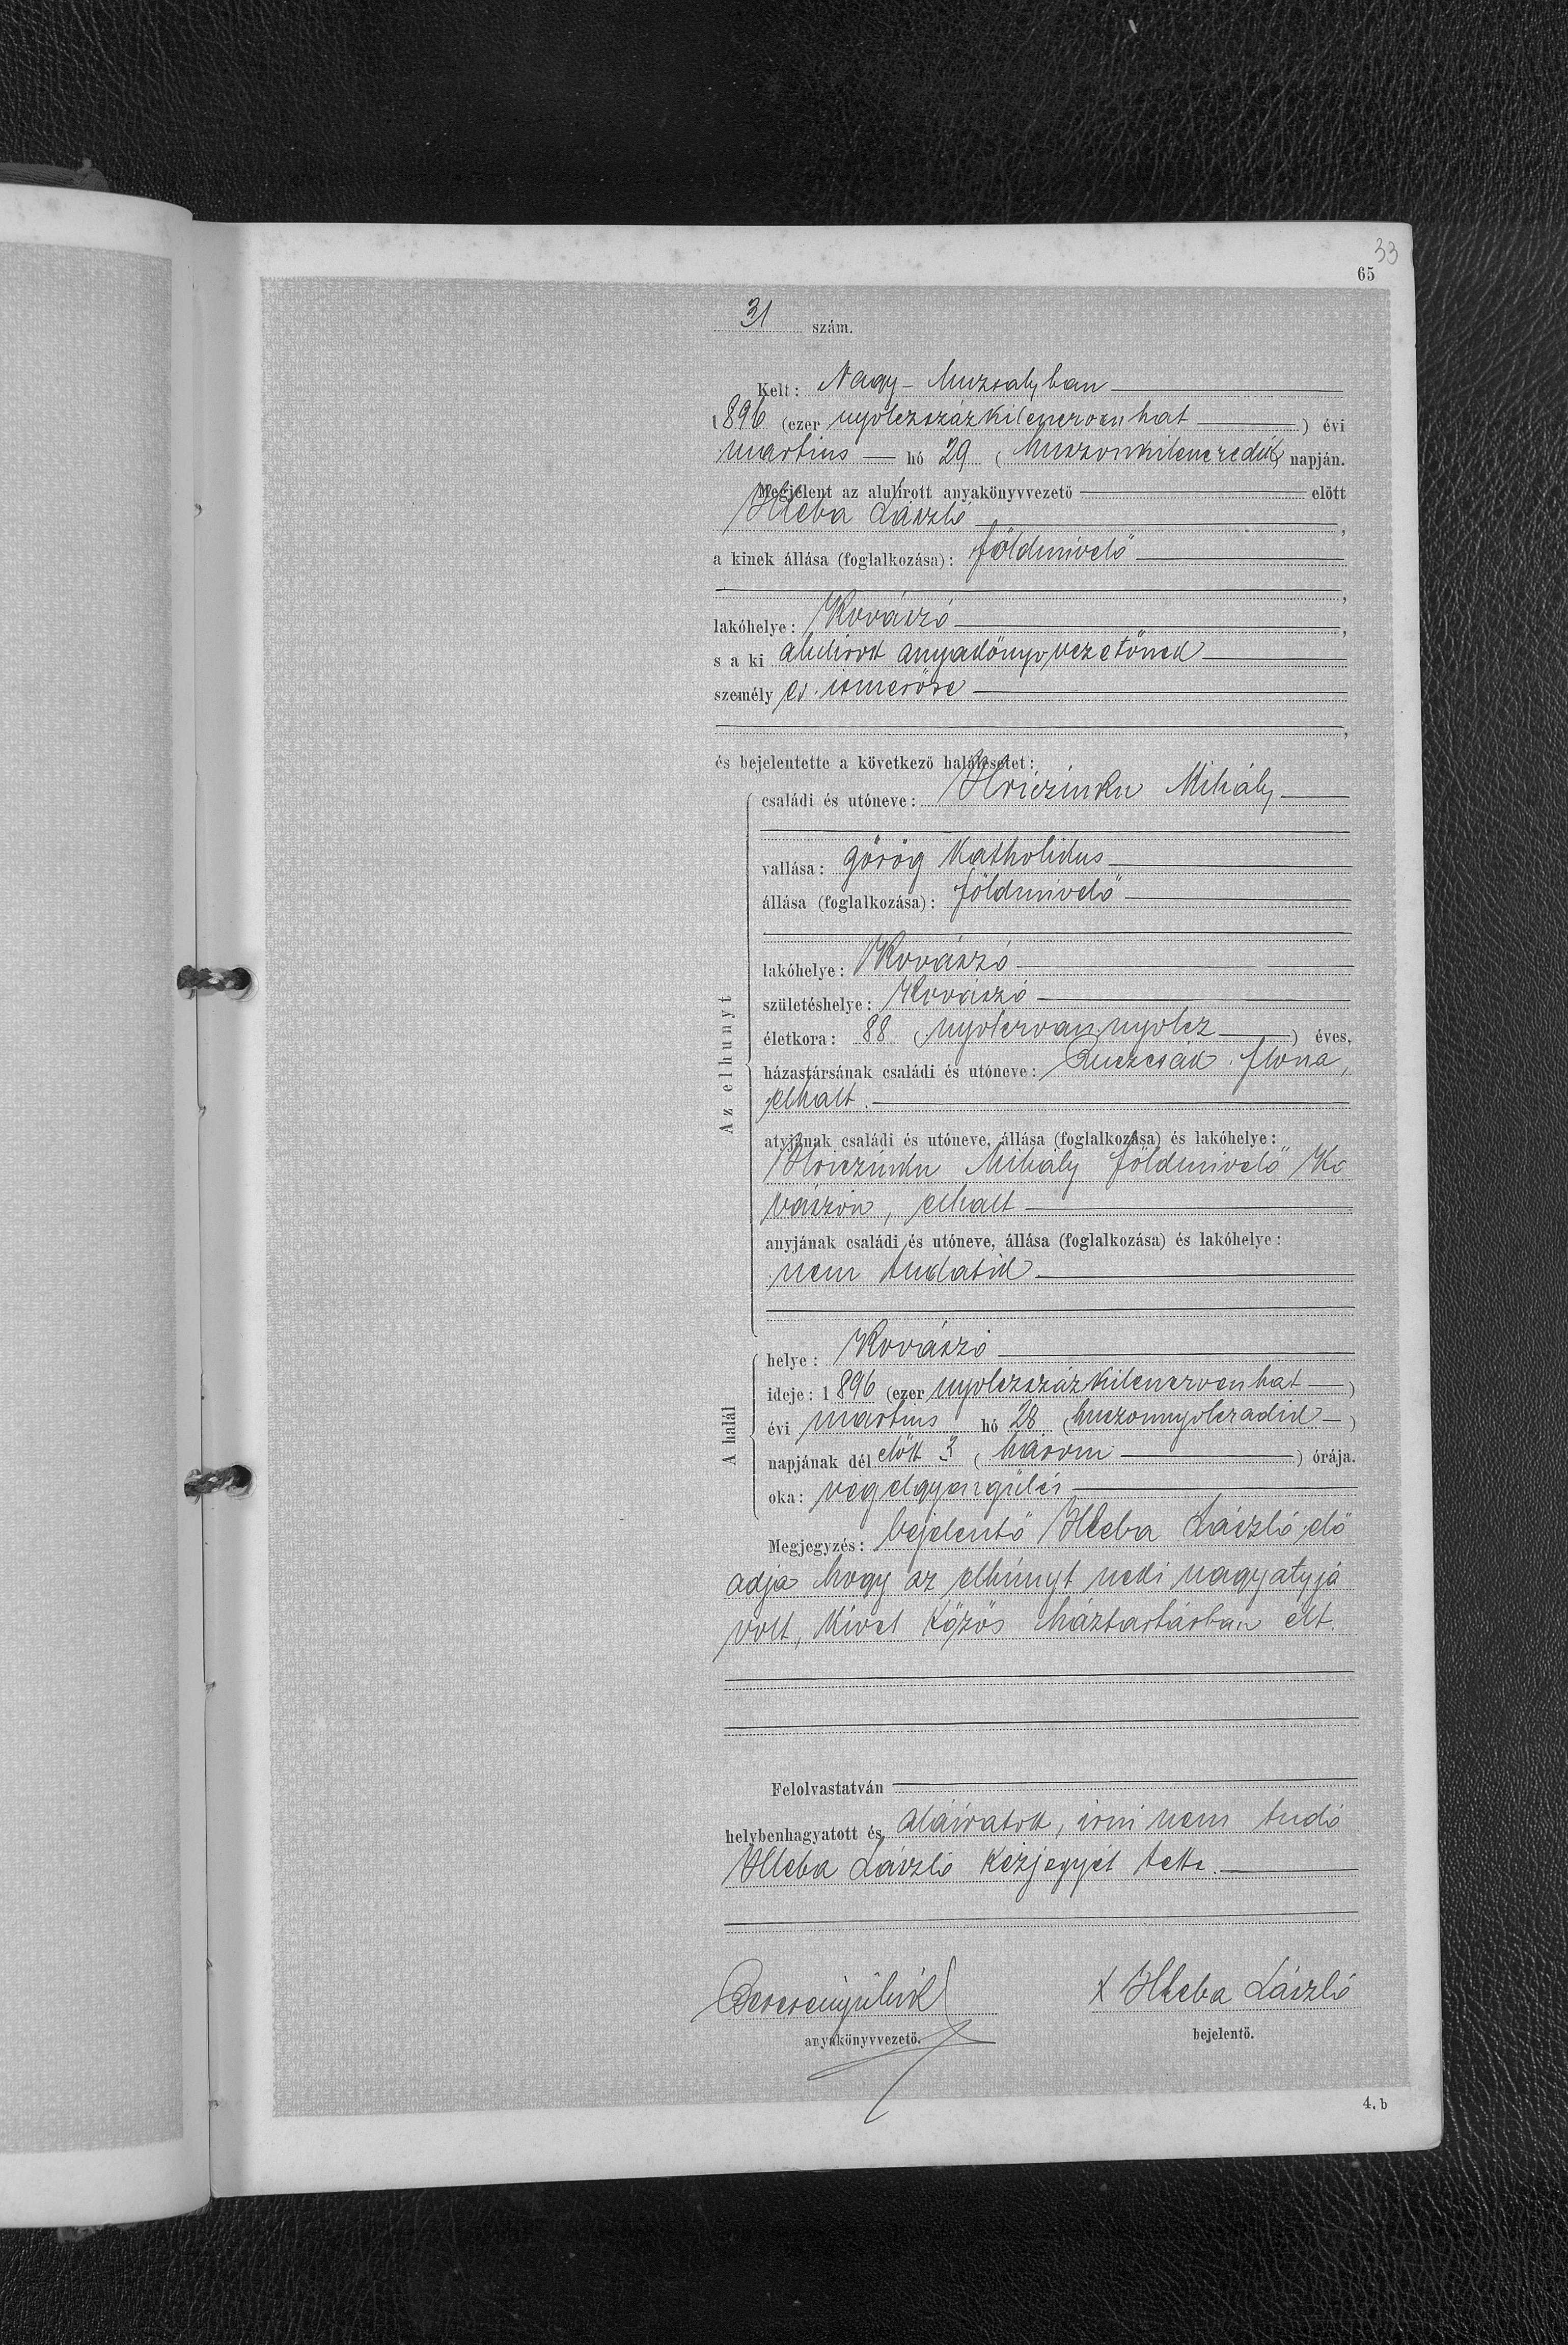 33
65
31 szám.
Kelt: Nagy-Muzsalyban
1896 (ezer nyolczszázkilenczvenhat) évi
martius hó 29 (huszonkilenczedik) napján.
Megjelent az alulírott anyakönyvvezető előtt
Hleba László,
a kinek állása (foglalkozása): földmivelő
,
lakóhelye: Kovászó,
s a ki alulirott anyakönyvvezetőnek
személyes ismerőse
,
és bejelentette a következő halálesetet:
Az elhunyt
családi és utóneve: Hriczinku Mihály
vallása: görög katholikus
állása (foglalkozása): földmivelő
lakóhelye: Kovászó
születéshelye: Kovászó
életkora: 88 (nyolczvannyolcz) éves,
házastársának családi és utóneve: Ilona,
elhalt.
atyjának családi és utóneve, állása (foglalkozása) és lakóhelye:
Hriczinku Mihály földmivelő Ko
vászón, elhalt
anyjának családi és utóneve, állása (foglalkozása) és lakóhelye:
nem tudatik
A halál
helye: Kovászó
ideje: 1896 (ezer nyolczszázkilenczvenhat)
évi martius hó 28 (huszonnyolczadik)
napjának délelőtt 3 (három) órája.
oka: végelgyengülés
Megjegyzés: bejelentő Hleba László elő
adja hogy az elhúnyt neki nagyatyja
volt, kivel közös háztartásban élt.
Felolvastatván
helybenhagyatott és aláiratott, irni nem tudó
Hleba László kézjegyét tette.
x Hleba László
anyakönyvvezető.
bejelentő.
4. b